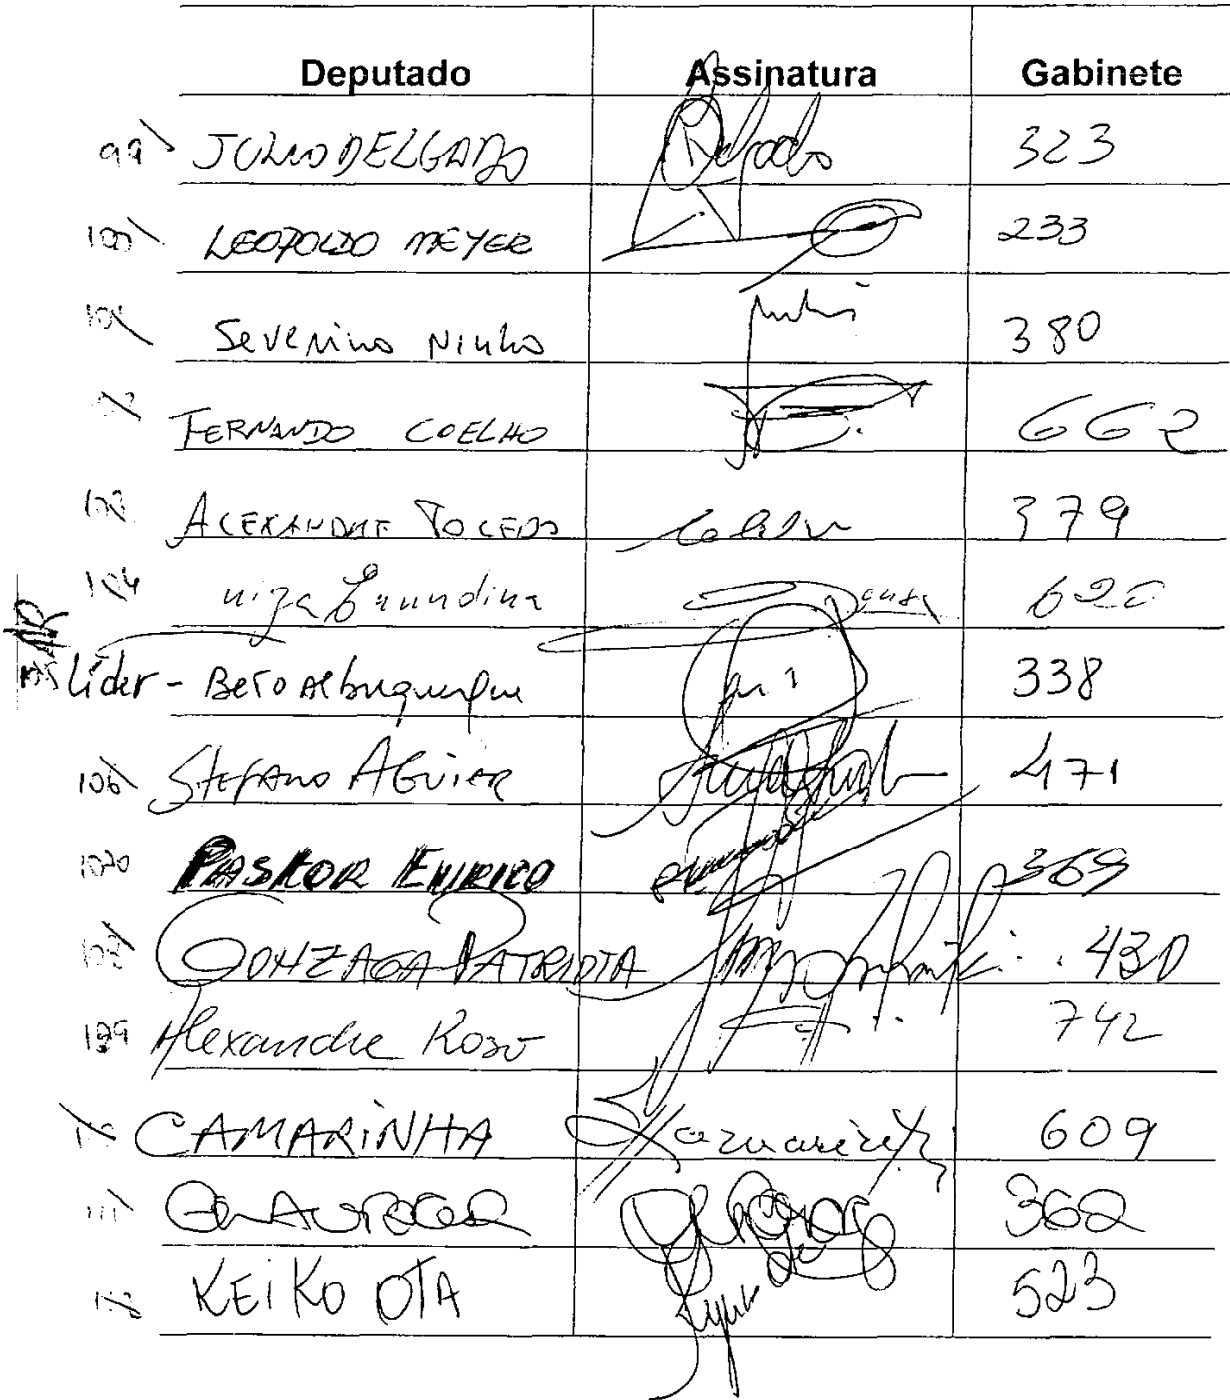 Deputado Assinatura Gabinete
99 JULIO DELGADO Delgado 323
100 LEOPOLDO MEYER 233
101 Severino Ninho 380
FERNANDO COELHO 662
103 ALEXANDRE TOLEDO 379
104 uiza Erundina 620
Líder - Beto Albuquerque 338
106 STEFANO AGUIAR 471
PASTOR EURICO 369
GONZAGA PATRIOTA 430
109 Alexandre Roso 742
CAMARINHA 609
111 GLAUBER 362
KEIKO OTA 523